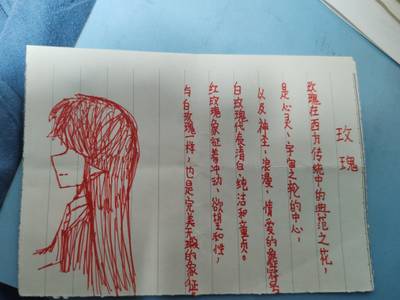 玫瑰
玫瑰在西方传统中的典范之花，
是心灵、宇宙之轮的中心，
以及神圣、浪漫、情爱的符号
白玫瑰代表清白、纯洁和童贞。
红玫瑰象征着冲动、欲望和性，
与白玫瑰一样，也是完美无瑕的象征